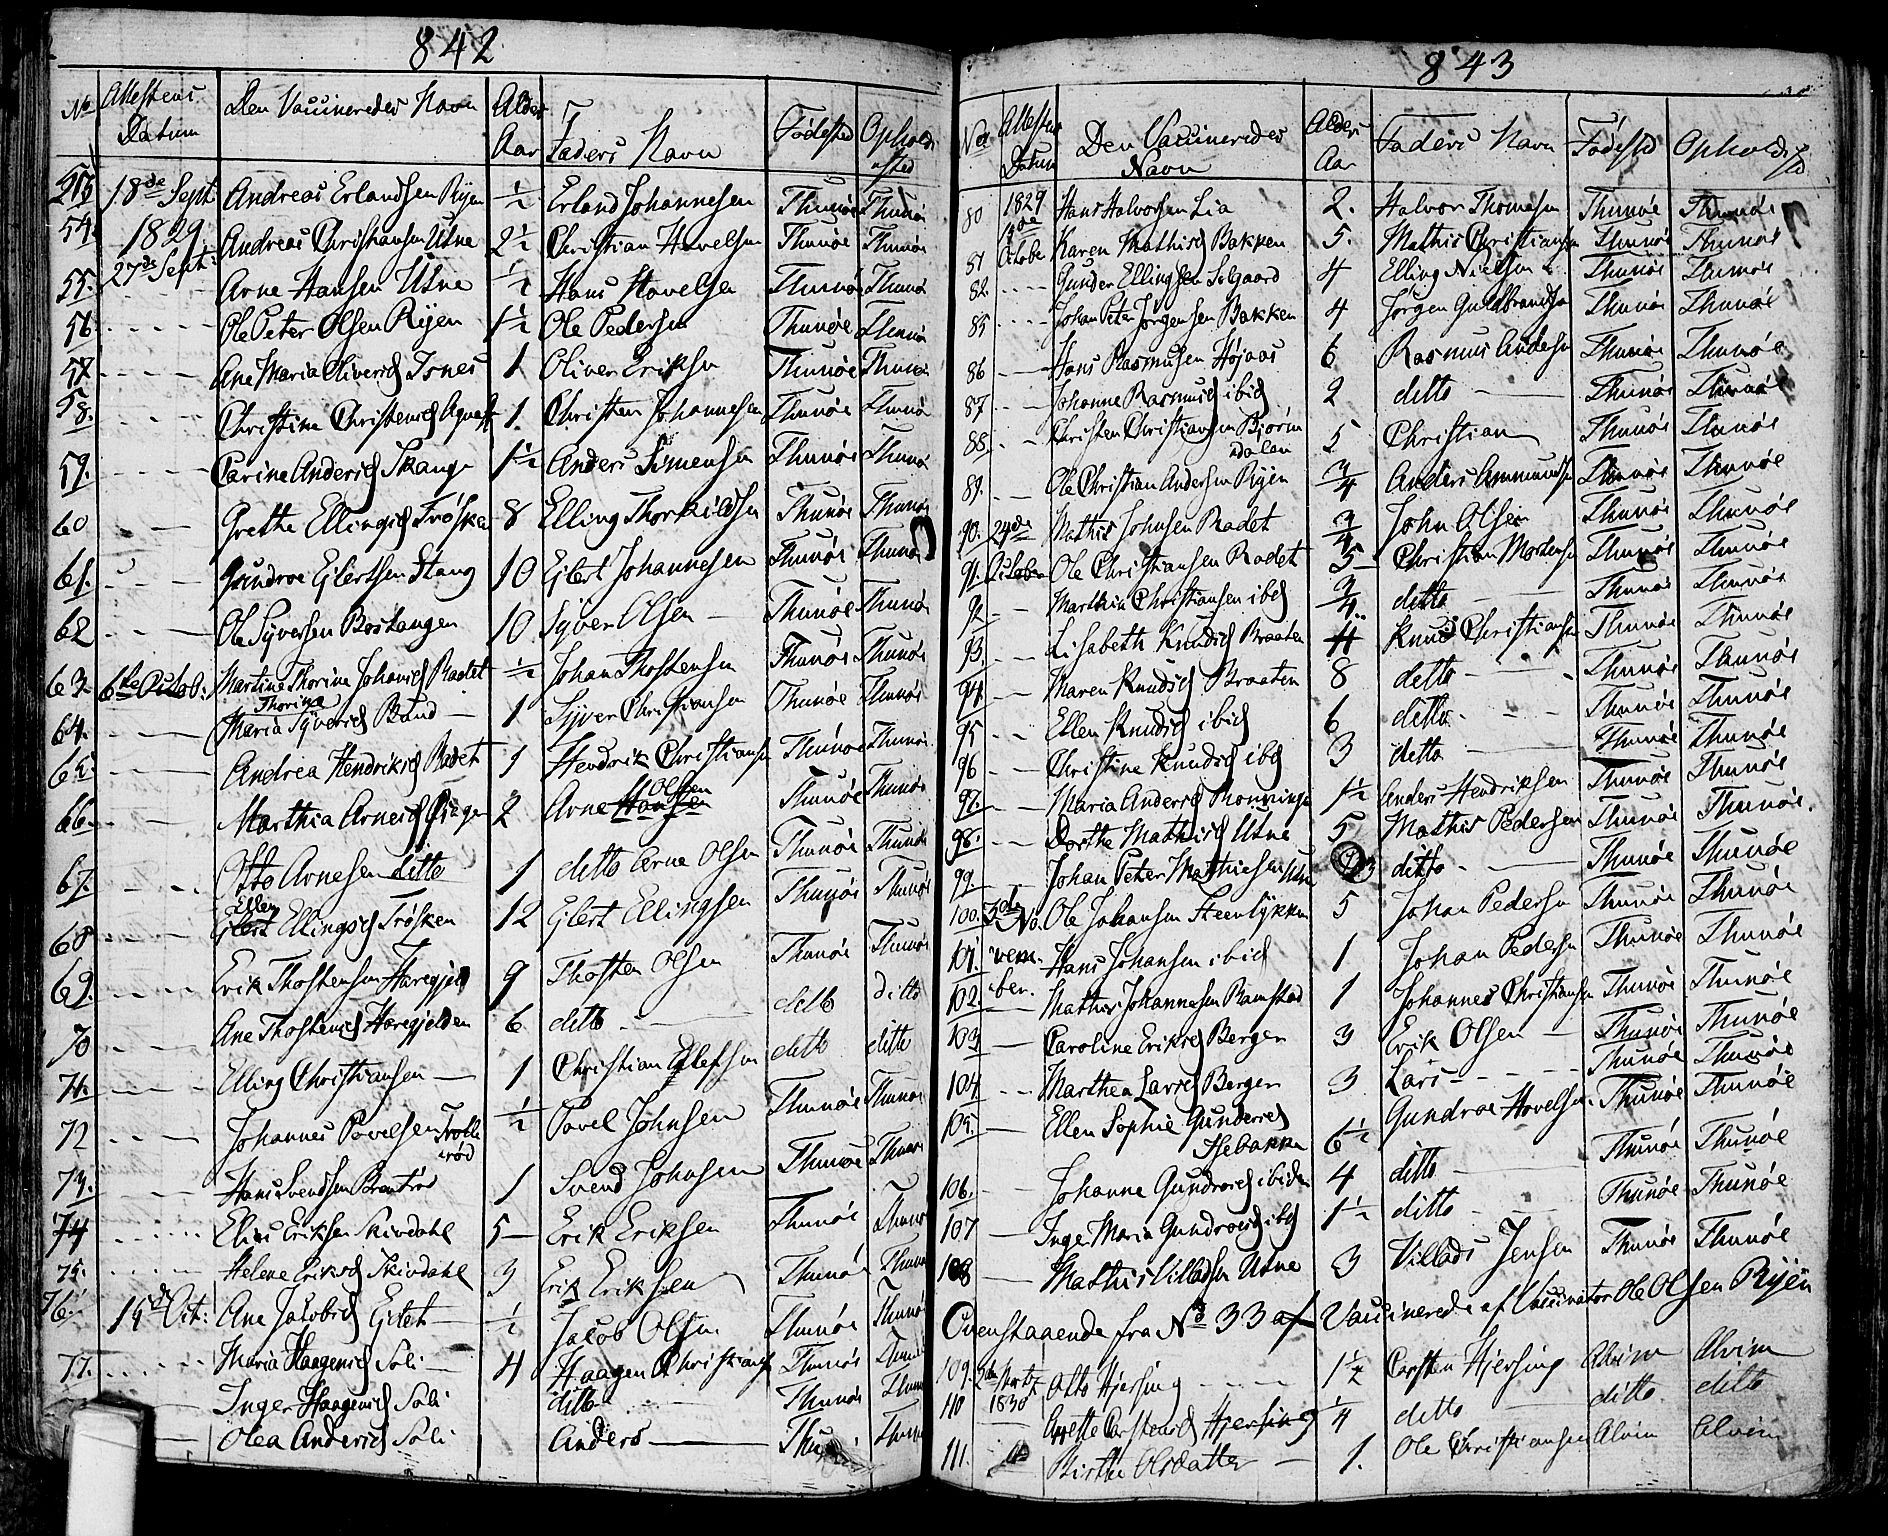 842
No Attestens Datum Den Vaccineredes Navn Alder Aar Faders Navn Fødested Opholdssted
53 18de Sept Andreas Erlandsen Ryen ½ Erland Johannesen Thunöe Thunöe
54. 1829 Andreas Christiansen Utne 2½ Christian Hovelsen Thunöe Thunöe
55. 27de Sept: Arne Hansen Utne ½ Hans Hovelsen Thunöe Thunöe
56 Ole Peter Olsen Ryen 1½ Ole Pedersen Thunöe Thunöe
57 Ane Maria Oliversd Isnes 1 Oliver Eriksen Thunöe Thunöe
58. Christine Christensd 1. Christen Johannesen Thunöe Thunöe
59. Carine Andersd Skange 1½ Anders Simensen Thunöe Thunöe
60 Grethe Ellingsd Trösken 8 Elling Thorkildsen Thunöe Thunöe
61. Gundroe Ejlertsen Stang 10 Ejlert Johannesen Thunöe Thunöe
62 Ole Syversen Bostangen 10 Syver Olsen Thunöe Thunöe
63 6te Octob: Martine Thorine Johansd Radet ½ Johan Thostensen Thunöe Thunöe
Thorine
64. Maria Syversd Baud 1 Syver Christiansen Thunöe Thunöe
65 Andrea Hendriksd Radet 1 Hendrik Christiansen Thunöe Thunöe
66 Marthia Arnesd 2 Arne Hansen Olsen Thunöe Thunöe
67. Otto Arnesen ditto 1 ditto Arne Olsen Thunöe Thunöe
Ellen
68 Ejlert Ellingsd Trösken 12 Ejlert Ellingsen Thunöe Thunöe
69. Erik Thostensen Haregjeld 9 Thosten Olsen Thunöe Thunöe
70 Ane Thostensd Haregjelden 6 ditto ditto ditto
71. Elling Christiansen 1 Christian ditto ditto
72 Johannes Povelsen Trollerød ½ Povel Johnsen Thunöe Thunöe
73. Hans Svendsen 1 Svend Johnsen Thunöe Thunöe
74 Elias Eriksen Skivdahl 5 Erik Eriksen Thunöe Thunöe
75. Helene Eriksd Skivdahl 3 Erik Eriksen Thunöe Thunöe
76 15de Oct: Ane Jacobsd Ejdet ½ Jacob Olsen Thunöe Thunöe
77. Maria Haagensd Soli 4 Haagen Christians Thunöe Thunöe
Inger Haagensd Soli ditto Thunöe Thunöe
Olea Andersd Soli Anders Thunöe
843
No Attestens Datum Den Vaccineredes Navn Alders Aar Faders Navn Fødested Opholdssted
80 1829 Hans Halvorsen Lia 2. Halvor Thomesen Thunöe Thunöe
81 Octobe Karen Mathisd Bakken 5. Mathis Christiansen Thunöe Thunöe
82. Gunder Ellingsen Solgaard 4 Elling Nielsen Thunöe Thunöe
85 Johan Peter Jørgensen Bakken 4 Jørgen Guldbrandsen Thunöe Thunöe
86 Hans Rasmusen Højaas 6 Rasmus Andersen Thunöe Thunöe
87 Johanne Rasmusd ibid 2 ditto Thunöe Thunöe
88. Christen Christiansen Bjørndalen 5 Christian Thunöe Thunöe
89. Ole Christian Andersen Ryen ¾ Anders Ammundsen Thunöe Thunöe
90. 24de Mathis Johnsen Radet ¾ John Olsen Thunöe Thunöe
91. October Ole Christiansen Radet 5 Christian Mortensen Thunöe Thunöe
92 Marthia Christiansen ibd ¾ ditto Thunöe Thunöe
93 Lisabeth Knudsd Braaten 11 Knud Christiansen Thunöe Thunöe
94 Maren Knudsd Braaten 8 ditto Thunöe Thunöe
95 Ellen Knudsd ibid 6 ditto Thunöe Thunöe
96 Christine Knudsd ibd 3 ditto Thunöe Thunöe
97. Maria Andersd Rønningen 1½ Anders Hendriksen Thunöe Thunöe
98. Dorthe Mathisd Utne 5 Mathis Pedersen Thunöe Thunöe
99 Johan Peter Matthiesen Utne 3 ditto Thunöe Thunöe
100. 3de No Ole Johansen Steenlykken 5 Johan Pedersen Thunöe Thunöe
101. vem- Hans Johansen ibid 1 Johan Pedersen Thunöe Thunöe
102. ber. Mathis Johannesen Ramstad 1 Johannes Christiansen Thunöe Thunöe
103 Caroline Eriksd Bergen 3 Erik Olsen Thunöe Thunöe
104. Marthea Larsd Bergen 3 Lars Thunöe Thunöe
105. Ellen Sophie Gundersd Hebakken 6½ Gundroe Hovelsen Thunöe Thunöe
106. Johanne Gundroesd ibiden 4 ditto Thunöe Thunöe
107 Inger Maria Gundroesd ibd 1½ ditto Thunöe Thunöe
108 Mathis Villadsen Utne 3 Villads Jensen Thunöe Thunöe
Ovenstaaende fra No 33 af Vaccinerede af Vaccinator Ole Olsen Ryen
109. 2de Martz Otto Hjersing 1½ Carsten Hjersing Alvim Alvim
110 1830 Grette Carstensd Hjersing ¼ ditto ditto ditto
111. Birthe Olsdatter 1. Ole Christiansen Alvim Alvim